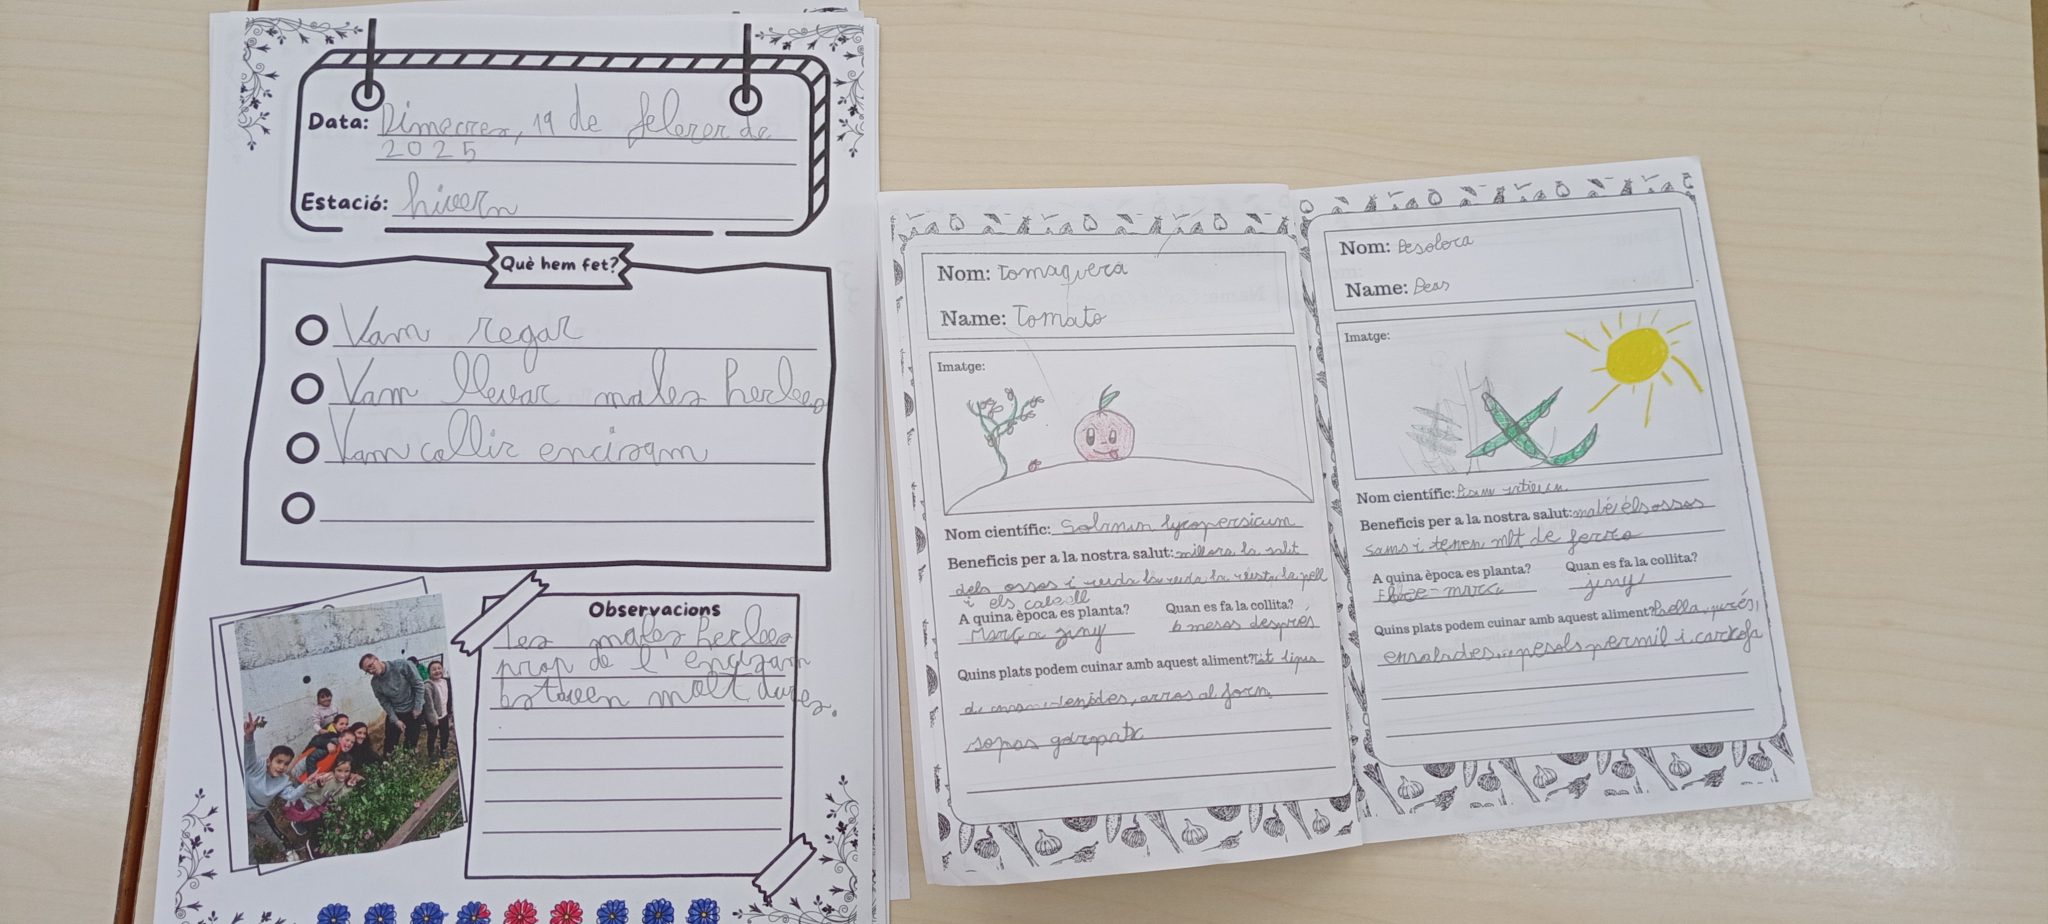 Data: Dimecres, 19 de febrer de
2025
Estació: hivern
Què hem fet?
Vam regar
Vam llevar males herbes
Vam collir encisam
Observacions
Les males herbes
prop de l'encisam
estaven molt dures.
Nom: Tomaquera
Name: Tomato
Imatge:
Nom científic: Solanun lycopersicum
Beneficis per a la nostra salut: millora la salut
dels ossos i cuida la vista, la pell
i els cabell
A quina època es planta?
Març a juny
Quan es fa la collita?
6 mesos després
Quins plats podem cuinar amb aquest aliment?
arros al forn
sopas
Nom: Pesolera
Name: Peas
Imatge:
Nom científic:
Beneficis per a la nostra salut: els ossos
sans i tenen molt de ferro
A quina època es planta?
Quan es fa la collita?
juny
Quins plats podem cuinar amb aquest aliment? Paella, purés,
ensalades... pesols pernil i carxofa